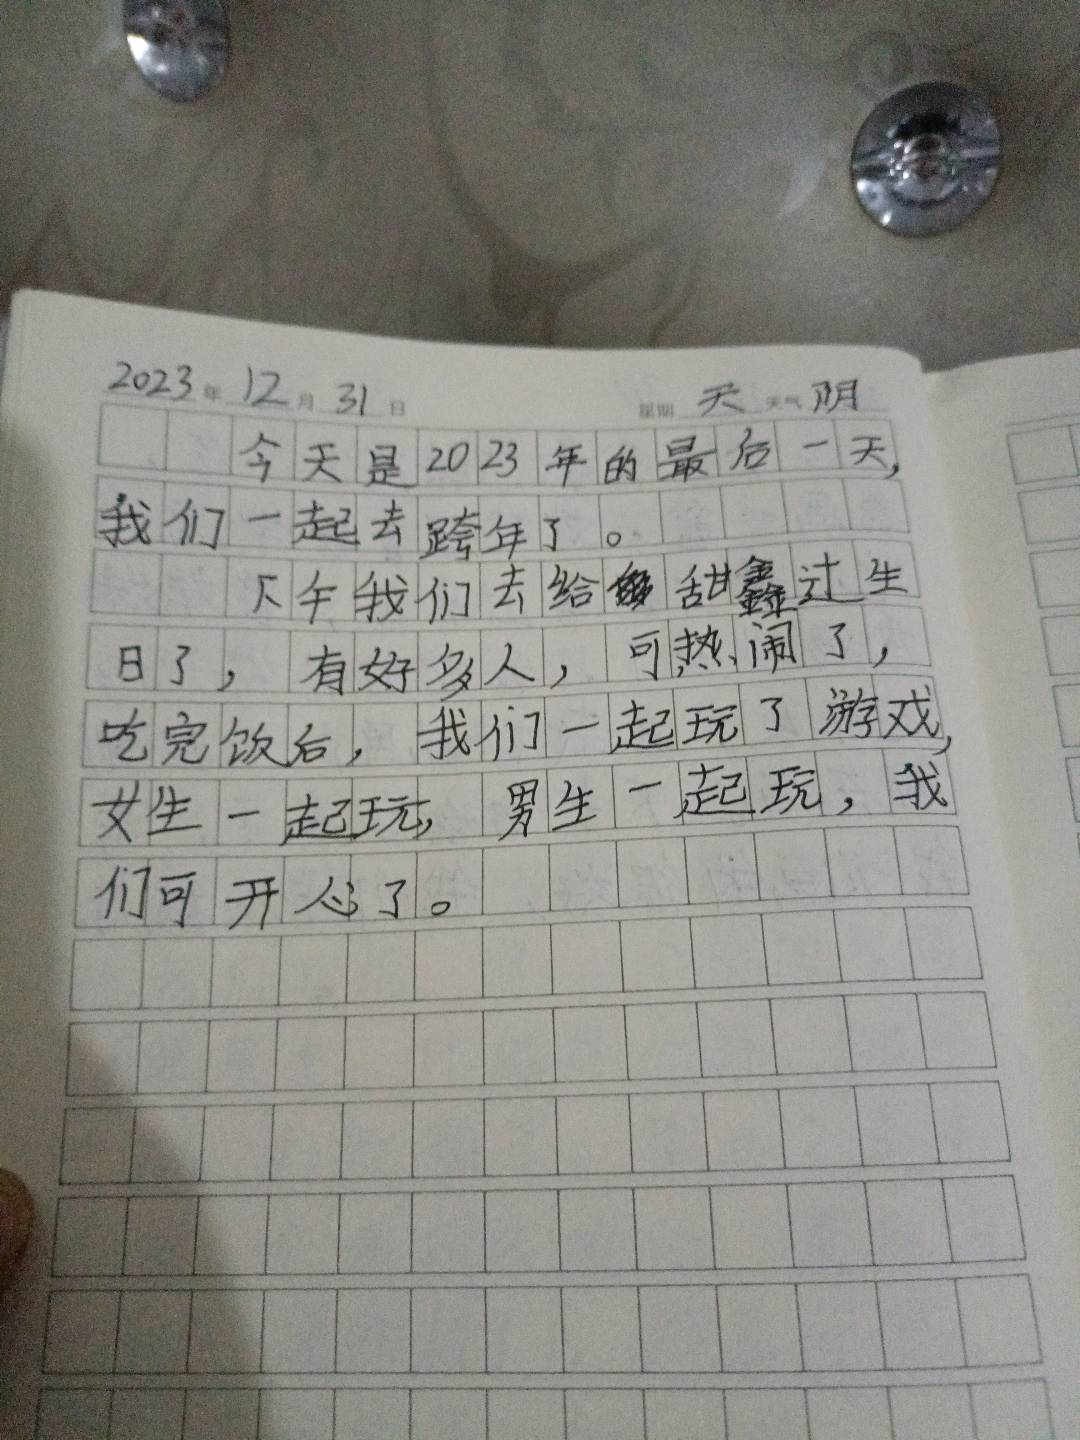 2023年 12月 31日 星期 天 天气 阴
今天是2023年的最后一天,
我们一起去跨年了。
下午我们去给甜鑫过生
日了,有好多人,可热闹了,
吃完饭后,我们一起玩了游戏,
女生一起玩,男生一起玩,我
们可开心了。